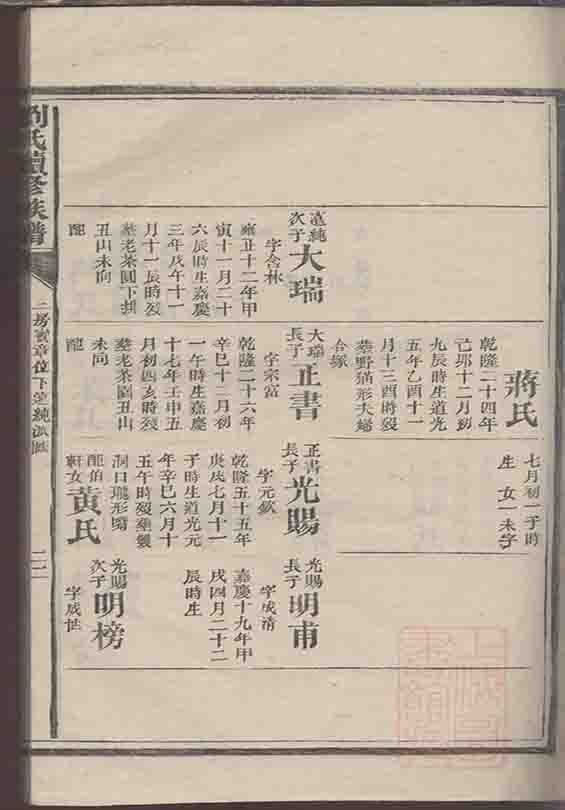 蔣氏
乾隆二十四年
己卯十二月初
九辰時生道光
五年乙酉十一
月十三酉時歿
葬野猫形夫婦
合塚
七月初一子時
生 女一未字
遠純
次子
大瑞
字含林
雍正十二年甲
寅十一月二十
六辰時生嘉慶
三年戊午十一
月十一辰時歿
葬老茶園下抝
丑山未向
配
大瑞
長子
正書
字宗富
乾隆二十六年
辛巳十二月初
一午時生嘉慶
十七年壬申五
月初四亥時歿
葬老茶園丑山
未向
配
正書
長子
光賜
字元欽
乾隆五十五年
庚戌七月十一
子時生道光元
年辛巳六月十
五午時歿葬
洞口形
配伯
軒女
黃氏
光賜
長子
明甫
字成清
嘉慶十九年甲
戌四月二十二
辰時生
光賜
次子
明榜
字成
劉氏續修族譜
二房賓章位下